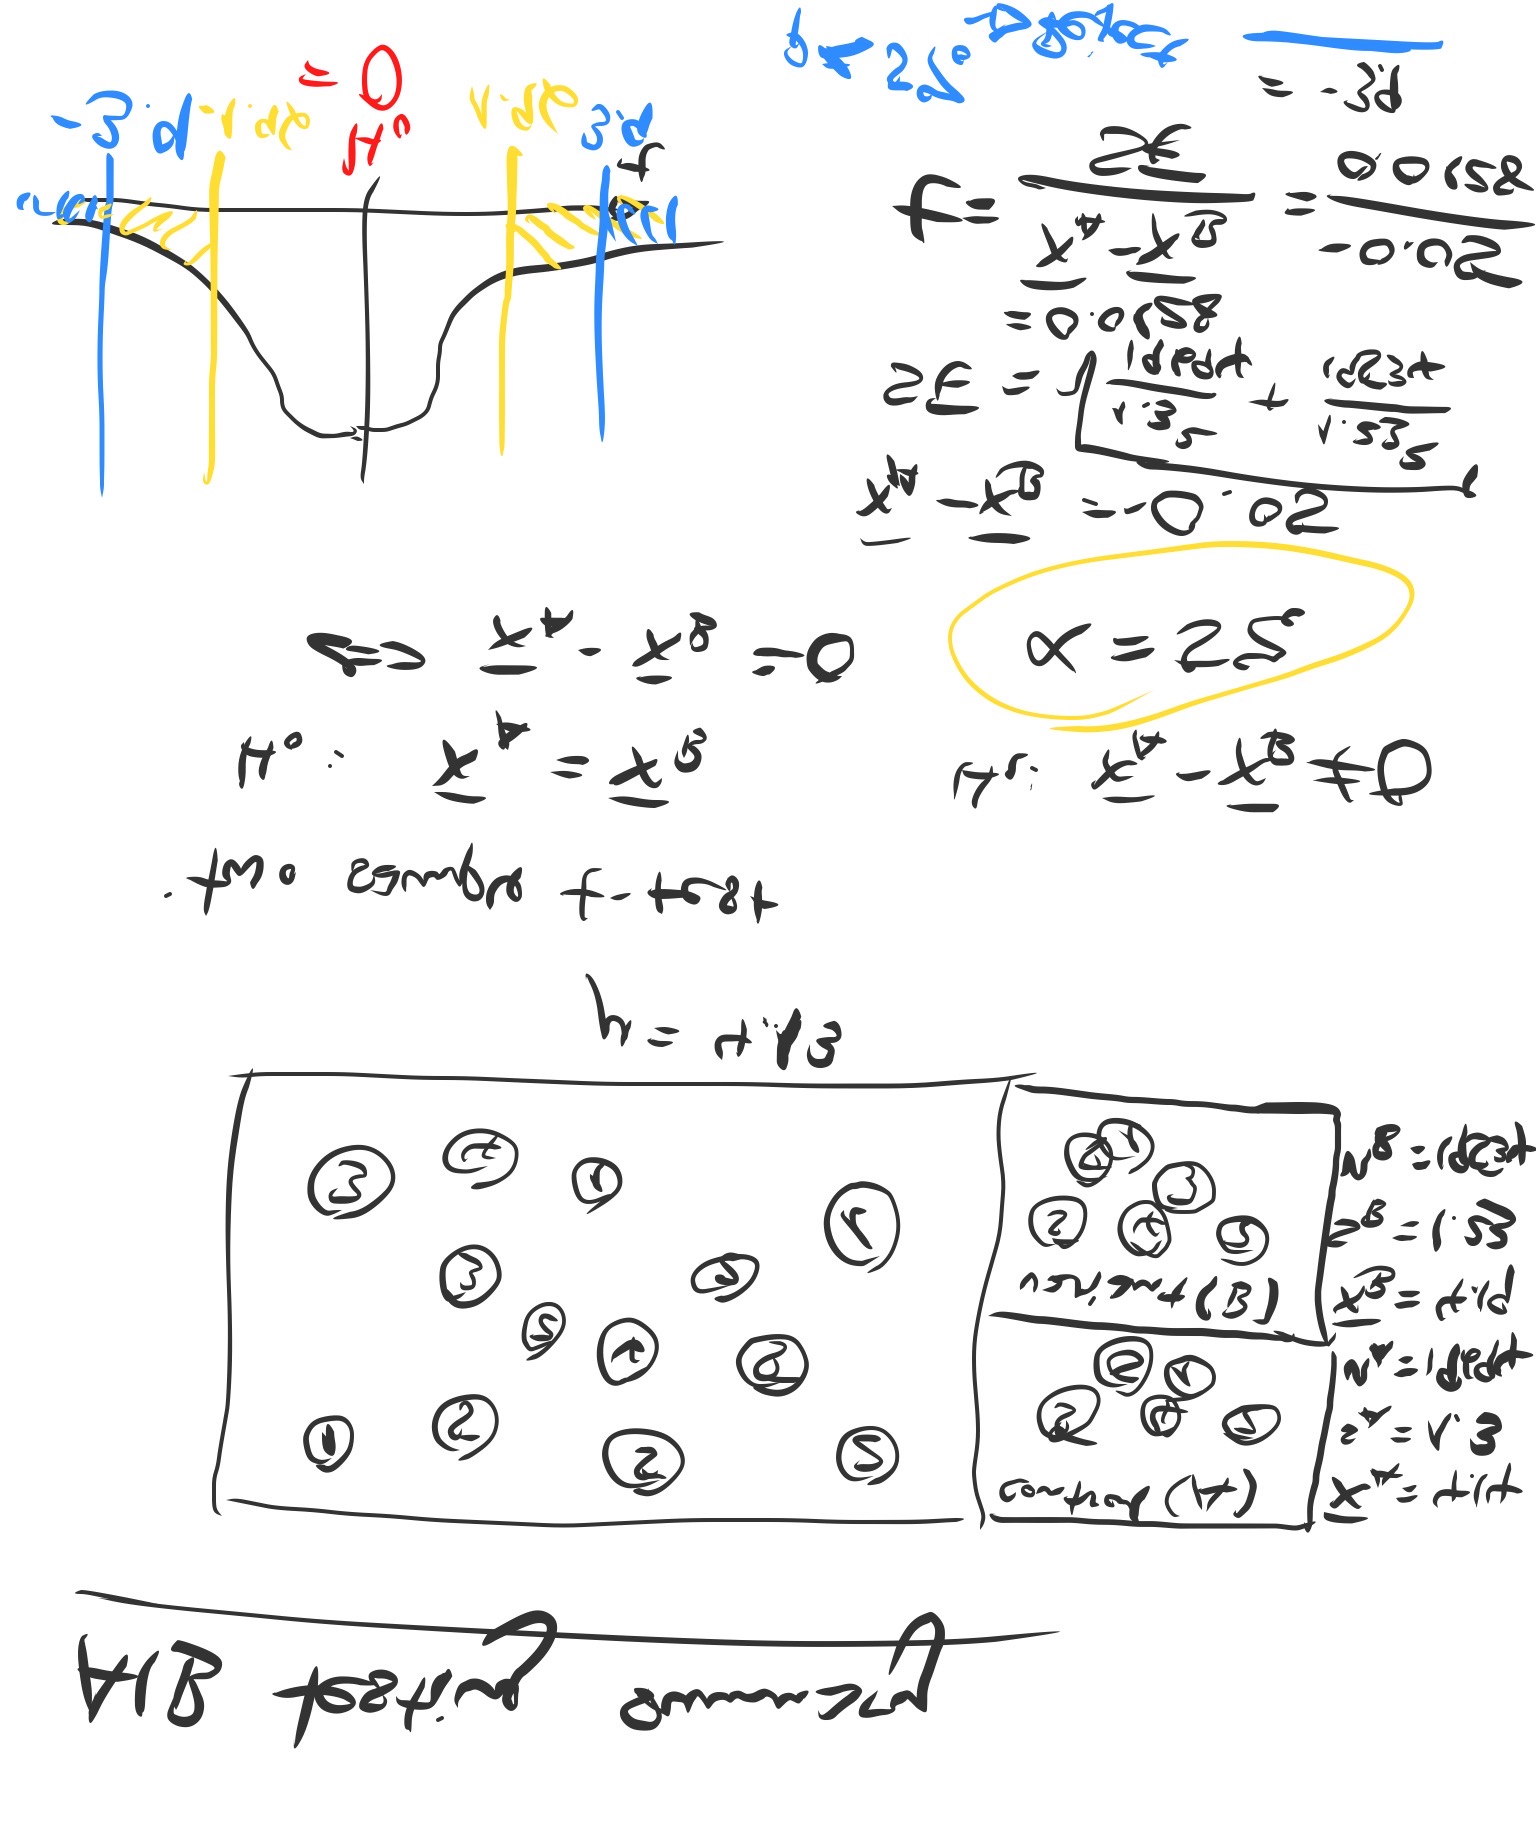 A/B testing summary
1 5 5 2
2 4 5
3 2 1
3 4 1
μ = 4.13
control (A)
5 4 2
5 1
x̄_A = 4.14
s_A = 1.3
n_A = 19694
variant (B)
5 4 2
3
5 1
x̄_B = 4.19
s_B = 1.23
n_B = 19534
· two sample t-test
H₀: x̄_A = x̄_B
⇔ x̄_A - x̄_B = 0
H₁: x̄_A - x̄_B ≠ 0
α = 5%
x̄_A - x̄_B = -0.05
SE = √(1.3²/19694 + 1.23²/19534)
= 0.0128
t = (x̄_A - x̄_B)/SE = -0.05/0.0128
= -3.9
t
-3.9 -1.96 H₀ 1.96 3.9
= 0
p < 5%
→ Reject